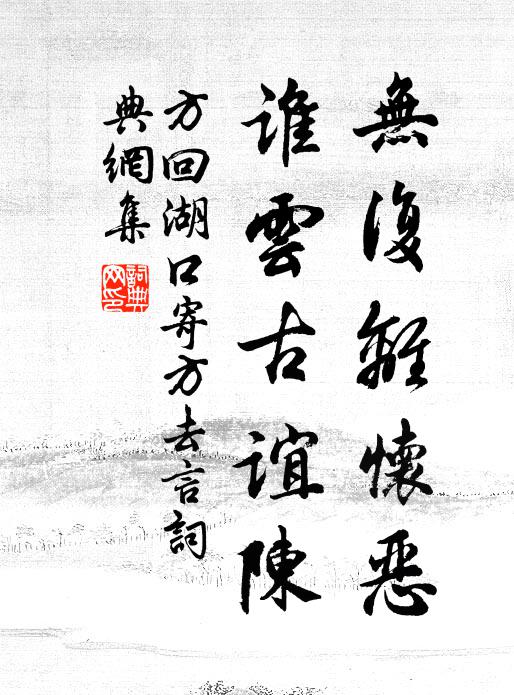 無復離懷惡
誰雲古誼陳
方回湖口寄方去言詞
典網集
詞典网印